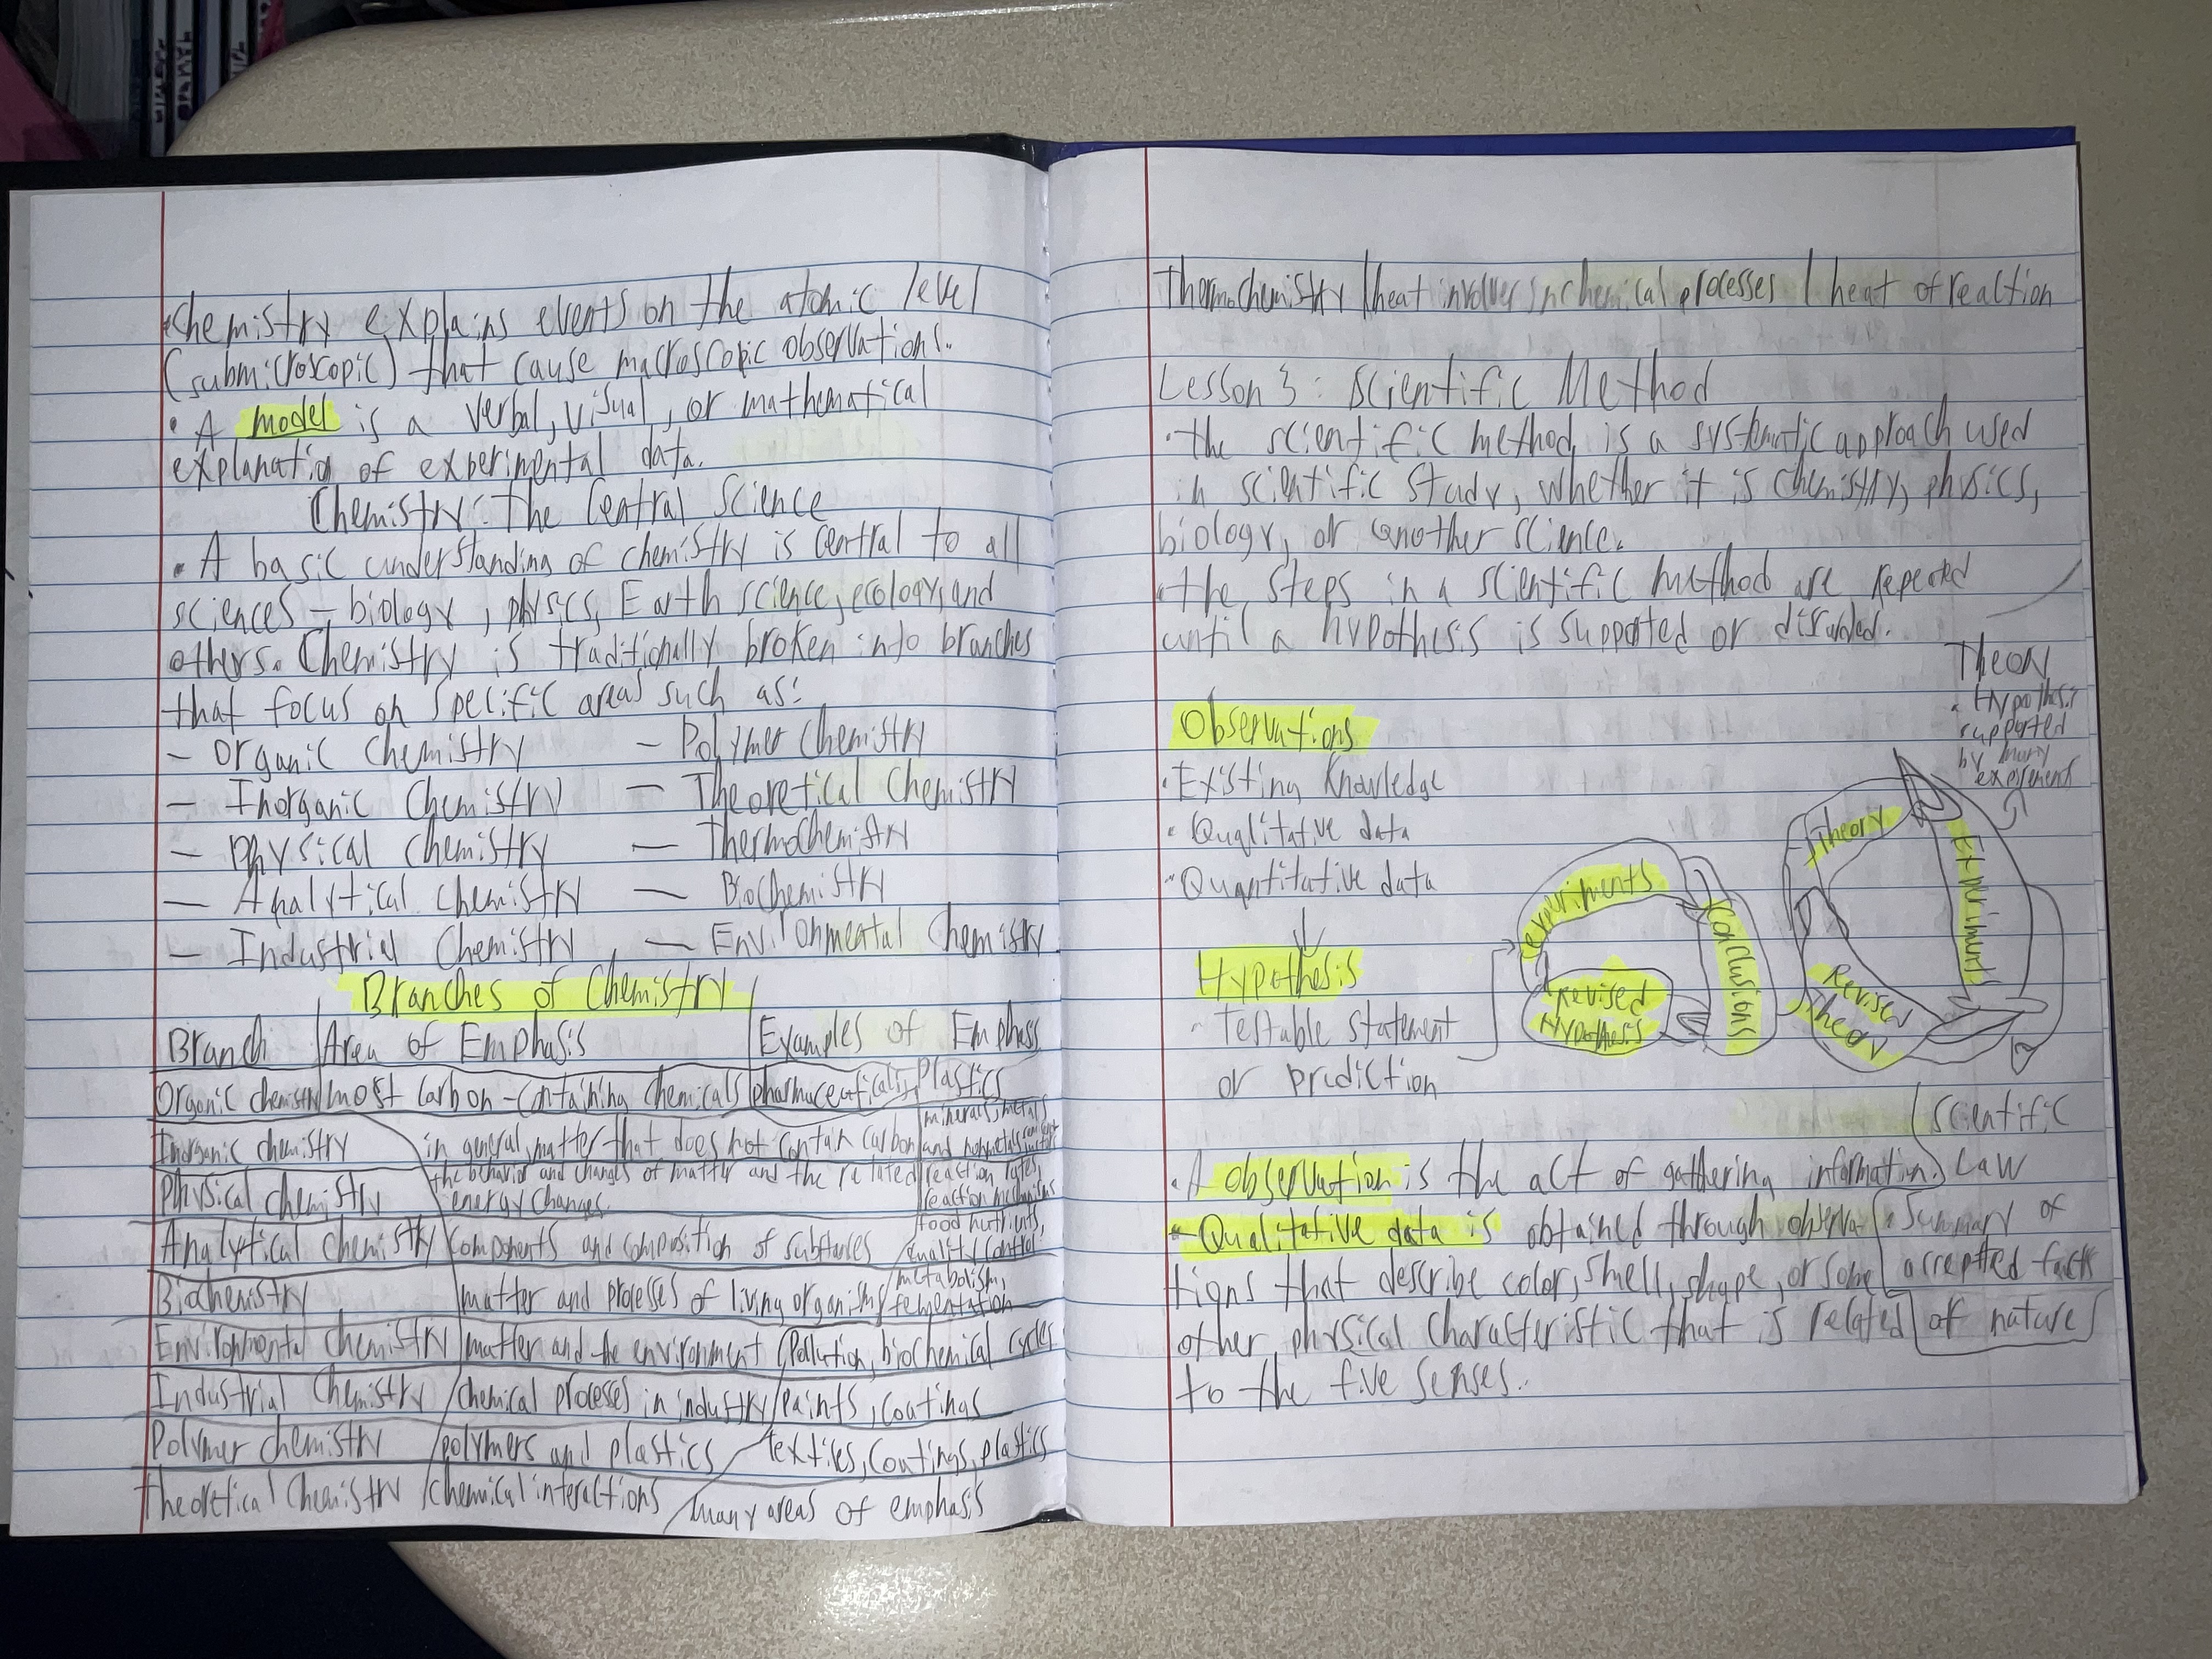 • Chemistry explains events on the atomic level
(submicroscopic) that cause macroscopic observations.
• A model is a verbal, visual, or mathematical
explanation of experimental data.
Chemistry: The Central Science
• A basic understanding of chemistry is central to all
sciences – biology, physics, Earth science, ecology, and
others. Chemistry is traditionally broken into branches
that focus on specific areas such as:
– Organic Chemistry – Polymer Chemistry
– Inorganic Chemistry – Theoretical Chemistry
– Physical Chemistry – Thermochemistry
– Analytical Chemistry – Biochemistry
– Industrial Chemistry – Environmental Chemistry
Branches of Chemistry
Branch | Area of Emphasis | Examples of Emphasis
Organic chemistry | most carbon-containing chemicals | pharmaceuticals, plastics
Inorganic chemistry | in general, matter that does not contain carbon | minerals, metals and nonmetals
Physical chemistry | the behavior and changes of matter and the related energy changes. | reaction rates, reaction mechanisms
Analytical chemistry | components and composition of substances | food nutrients, quality control
Biochemistry | matter and processes of living organisms | metabolism, fermentation
Environmental chemistry | matter and the environment | Pollution, biochemical cycles
Industrial Chemistry | chemical processes in industry | Paints, coatings
Polymer chemistry | polymers and plastics | textiles, coatings, plastics
Theoretical Chemistry | chemical interactions | many areas of emphasis
Thermochemistry | heat involves in chemical processes | heat of reaction
Lesson 3: Scientific Method
• The scientific method is a systematic approach used
in scientific study, whether it is chemistry, physics,
biology, or another science.
• The steps in a scientific method are repeated
until a hypothesis is supported or
Observations
• Existing Knowledge
• Qualitative data
• Quantitative data
Hypothesis
• Testable statement
or prediction
experiments
Conclusions
revised
Hypothesis
Theory
• Hypothesis
supported
by many
Theory
Experiments
Revised
Theory
Scientific
Law
• Summary of
accepted facts
of nature
• A observation is the act of gathering information.
• Qualitative data is obtained through observa
tions that describe color, smell, shape, or some
other physical characteristic that is related
to the five senses.